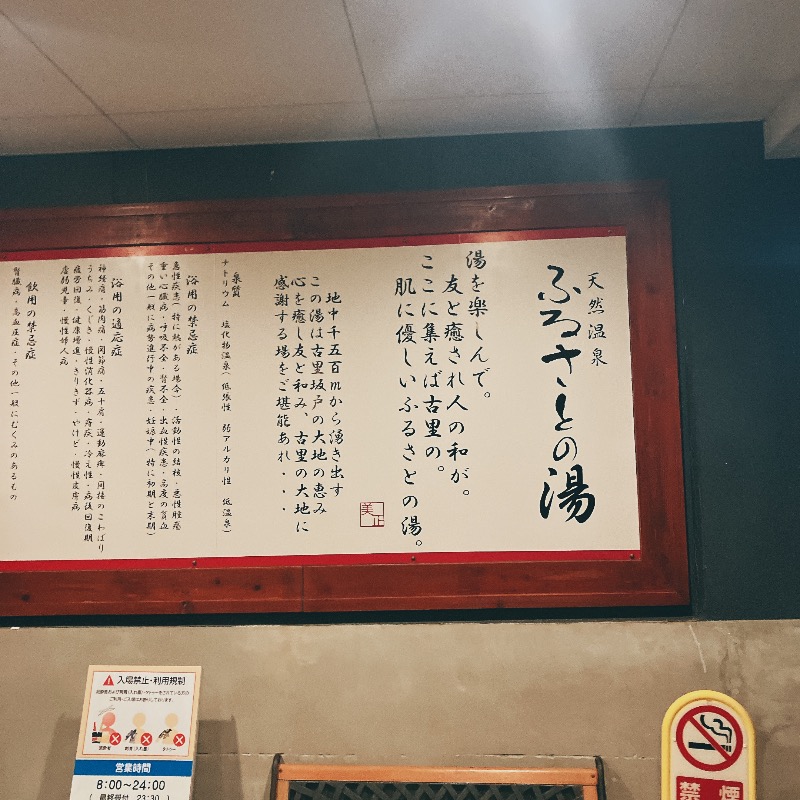 天然温泉
ふるさとの湯
湯を楽しんで。
友と癒され人の和が。
ここに集えば古里の。
肌に優しいふるさとの湯。
美正
地中千五百mから湧き出す
この湯は古里坂戸の大地の恵み
心を癒し友と和み、古里の大地に
感謝する場をご堪能あれ・・・
泉質
ナトリウム 塩化物温泉(低張性 弱アルカリ性 低温泉)
浴用の禁忌症
急性疾患(特に熱がある場合)・活動性の結核・悪性腫瘍
重い心臓病・呼吸不全・腎不全・出血性疾患・高度の貧血
その他一般に病勢進行中の疾患・妊娠中(特に初期と末期)
浴用の適応症
神経痛・筋肉痛・関節痛・五十肩・運動麻痺・関節のこわばり
うちみ・くじき・慢性消化器病・痔疾・冷え性・病後回復期
疲労回復・健康増進・きりきず・やけど・慢性皮膚病
虚弱児童・慢性婦人病
飲用の禁忌症
腎臓病・高血圧症・その他一般にむくみのあるもの
入場禁止・利用規制
営業時間
8:00~24:00
(最終受付 23:30)
禁煙